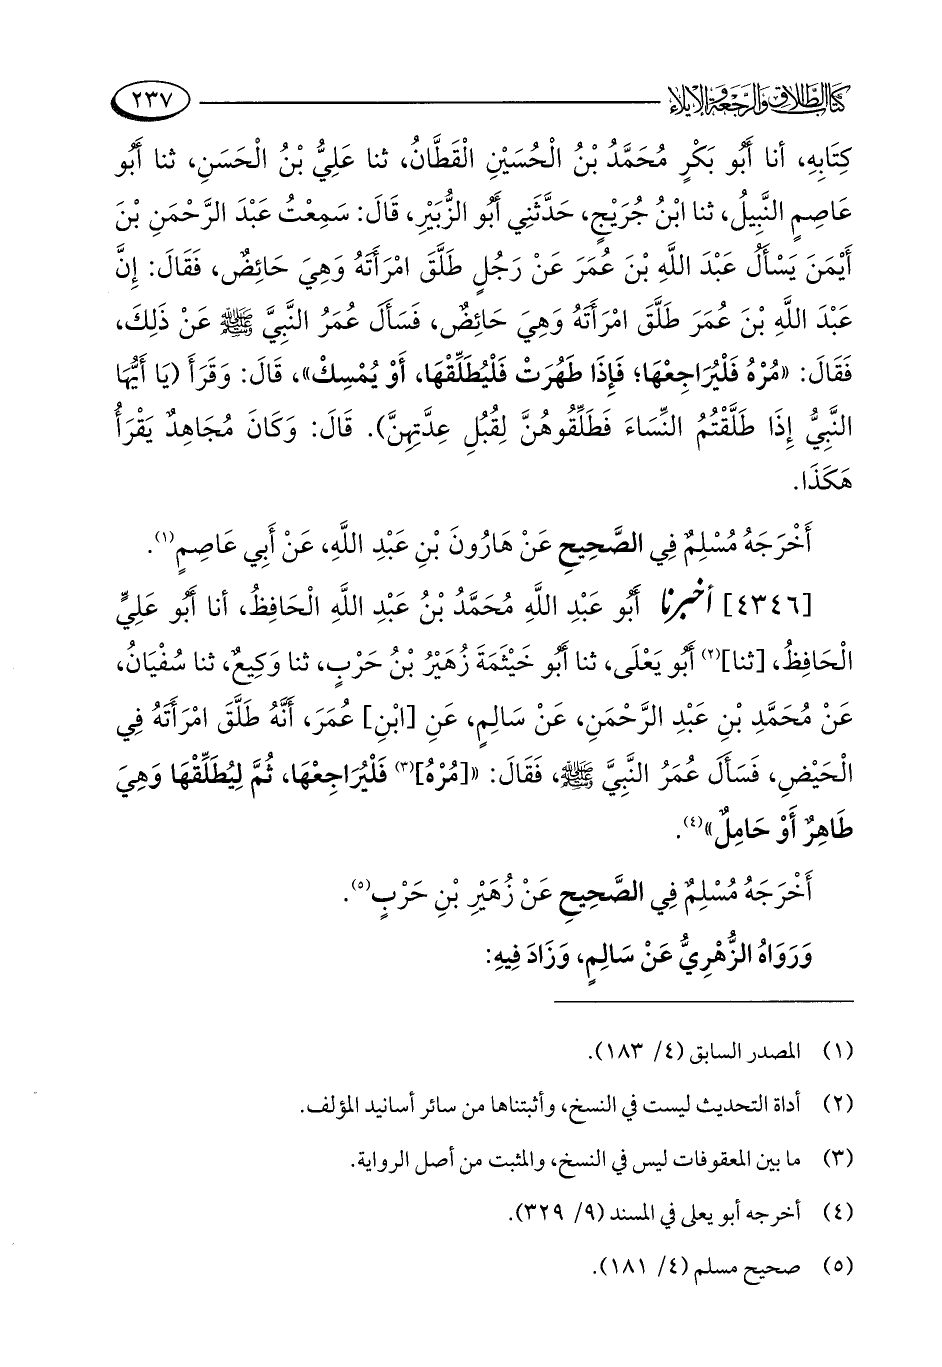 كتاب الطلاق والرجعة والإيلاء ٢٣٧
كِتَابِهِ، أنا أَبُو بَكْرٍ مُحَمَّدُ بْنُ الْحُسَيْنِ الْقَطَّانُ، ثنا عَلِيُّ بْنُ الْحَسَنِ، ثنا أَبُو
عَاصِمٍ النَّبِيلُ، ثنا ابْنُ جُرَيْجٍ، حَدَّثَنِي أَبُو الزُّبَيْرِ، قَالَ: سَمِعْتُ عَبْدَ الرَّحْمَنِ بْنَ
أَيْمَنَ يَسْأَلُ عَبْدَ اللَّهِ بْنَ عُمَرَ عَنْ رَجُلٍ طَلَّقَ امْرَأَتَهُ وَهِيَ حَائِضٌ، فَقَالَ: إِنَّ
عَبْدَ اللَّهِ بْنَ عُمَرَ طَلَّقَ امْرَأَتَهُ وَهِيَ حَائِضٌ، فَسَأَلَ عُمَرُ النَّبِيَّ ﷺ عَنْ ذَلِكَ،
فَقَالَ: «مُرْهُ فَلْيُرَاجِعْهَا؛ فَإِذَا طَهُرَتْ فَلْيُطَلِّقْهَا، أَوْ يُمْسِكْ»، قَالَ: وَقَرَأَ (يَا أَيُّهَا
النَّبِيُّ إِذَا طَلَّقْتُمُ النِّسَاءَ فَطَلِّقُوهُنَّ لِقُبُلِ عِدَّتِهِنَّ). قَالَ: وَكَانَ مُجَاهِدٌ يَقْرَأُ
هَكَذَا.
أَخْرَجَهُ مُسْلِمٌ فِي الصَّحِيحِ عَنْ هَارُونَ بْنِ عَبْدِ اللَّهِ، عَنْ أَبِي عَاصِمٍ(١).
[٤٣٤٦] أخبرنا أَبُو عَبْدِ اللَّهِ مُحَمَّدُ بْنُ عَبْدِ اللَّهِ الْحَافِظُ، أنا أَبُو عَلِيٍّ
الْحَافِظُ، [ثنا](٢) أَبُو يَعْلَى، ثنا أَبُو خَيْثَمَةَ زُهَيْرُ بْنُ حَرْبٍ، ثنا وَكِيعٌ، ثنا سُفْيَانُ،
عَنْ مُحَمَّدِ بْنِ عَبْدِ الرَّحْمَنِ، عَنْ سَالِمٍ، عَنِ [ابْنِ] عُمَرَ، أَنَّهُ طَلَّقَ امْرَأَتَهُ فِي
الْحَيْضِ، فَسَأَلَ عُمَرُ النَّبِيَّ ﷺ، فَقَالَ: «[مُرْهُ](٣) فَلْيُرَاجِعْهَا، ثُمَّ لِيُطَلِّقْهَا وَهِيَ
طَاهِرٌ أَوْ حَامِلٌ»(٤).
أَخْرَجَهُ مُسْلِمٌ فِي الصَّحِيحِ عَنْ زُهَيْرِ بْنِ حَرْبٍ(٥).
وَرَوَاهُ الزُّهْرِيُّ عَنْ سَالِمٍ، وَزَادَ فِيهِ:
(١) المصدر السابق (٤/ ١٨٣).
(٢) أداة التحديث ليست في النسخ، وأثبتناها من سائر أسانيد المؤلف.
(٣) ما بين المعقوفات ليس في النسخ، والمثبت من أصل الرواية.
(٤) أخرجه أبو يعلى في المسند (٩/ ٣٢٩).
(٥) صحيح مسلم (٤/ ١٨١).